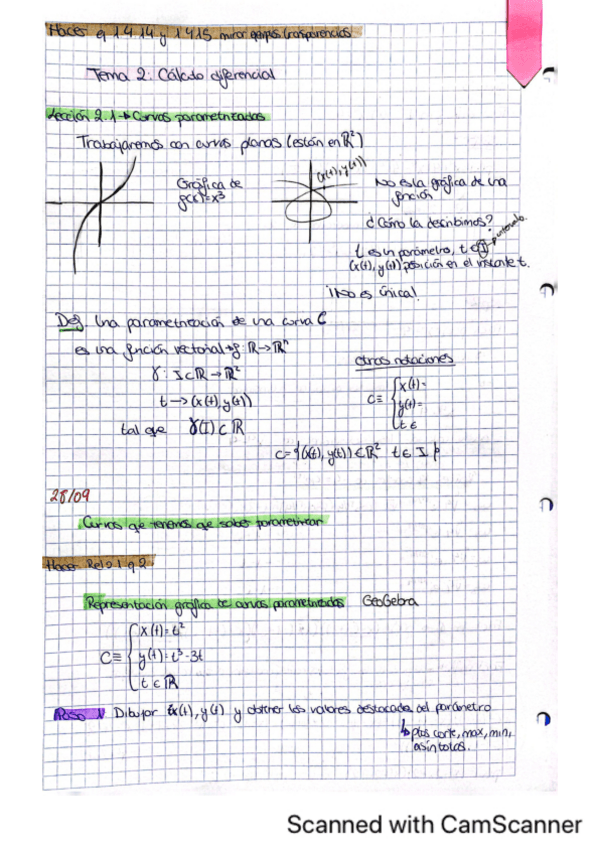 Hacer ej 1.4.14 y 1.4.15 mirar ejemplos transparencias
Tema 2: Cálculo diferencial
Lección 2.1 → Curvas parametrizadas
Trabajaremos con curvas planas (están en ℝ²)
Gráfica de
g(x)=x³
(x(t), y(t))
No es la gráfica de una
función
¿Cómo la describimos?
t es un parámetro, t ∈ I → intervalo
(x(t), y(t)) posición en el instante t.
¡No es única!
Def. Una parametrización de una curva C
es una función vectorial → f: ℝ → ℝⁿ
γ: I ⊂ ℝ → ℝ²
t → (x(t), y(t))
tal que γ(I) ⊂ ℝ
otras notaciones
C ≡ { x(t) =
y(t) =
t ∈
C = {(x(t), y(t)) ∈ ℝ² t ∈ I }
28/09
Curvas que tenemos que saber parametrizar
Hacer Rel 2.1 ej 2
Representación gráfica de curvas parametrizadas GeoGebra
C ≡ { x(t) = t²
y(t) = t³ - 3t
t ∈ ℝ
Paso 1 Dibujar x(t), y(t) y obtener los valores destacados del parámetro
↳ ptos corte, max, min,
asíntotas.
Scanned with CamScanner